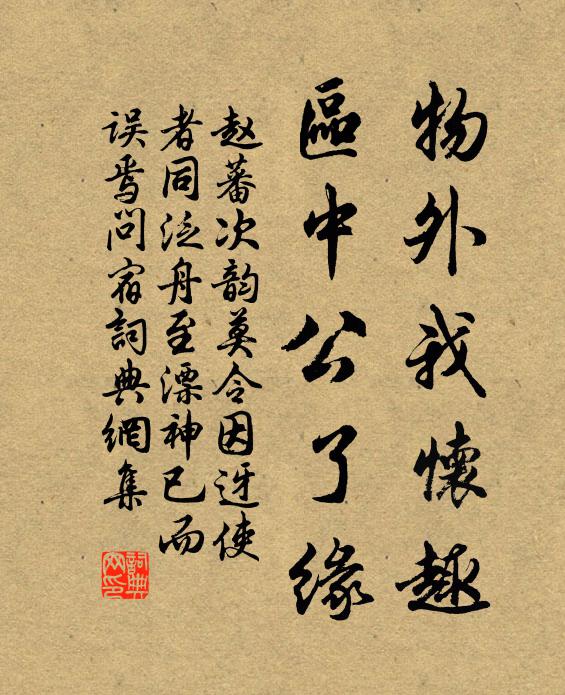 物外我懷趣
區中公了缘
赵蕃次韵莫令因迓使
者同泛舟至漂神已而
误焉问宿詞典網集
詞典